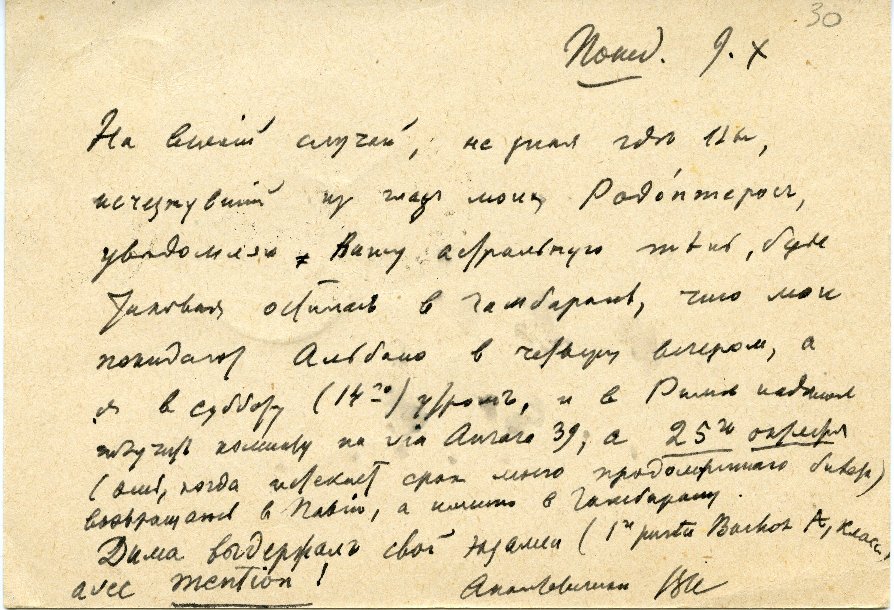 30
Понед. 9. X
На всякій случай, не зная гдѣ Ты,
исчезнувшій изъ глазъ моихъ Родóптеросъ,
увѣдомляю Вашу астральную тѣнь, буде
таковая осталась в Гамбаранѣ, что мои
покидают Альбано в четвергъ вечером, а
я в субботу (14го) утромъ, и в Римѣ надѣюсь
получить комнату на via Aurora 39, а 25го октября
(билѣ, когда истекает срок моего продолженнаго)
возвращаюсь в Павію, а именно в Гамбарану.
Дима выдержалъ свой экзамен (1re partie Bachot A, класс.)
avec mention!